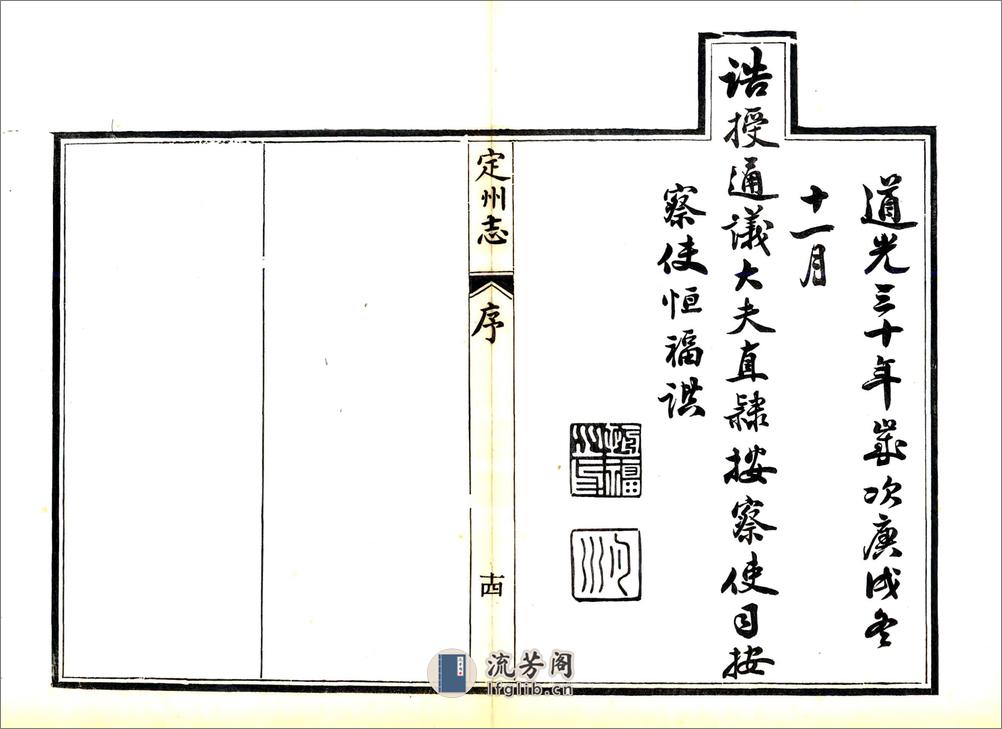 道光三十年歲次庚戌冬
十一月
誥授通議大夫直隸按察使司按
察使恒福譔
定州志
序
十四
流芳阁
lfglib.cn